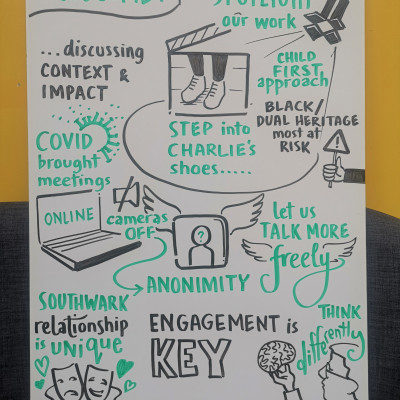 SPOTLIGHT
our work
...discussing
CONTEXT &
IMPACT
CHILD
FIRST
approach
BLACK/
DUAL HERITAGE
most at
RISK
STEP into
CHARLIE'S
shoes.....
COVID
brought
meetings
ONLINE
cameras
OFF
?
let us
TALK MORE
freely
ANONIMITY
SOUTHWARK
relationship
is UNIQUE
ENGAGEMENT is
KEY
THINK
differently